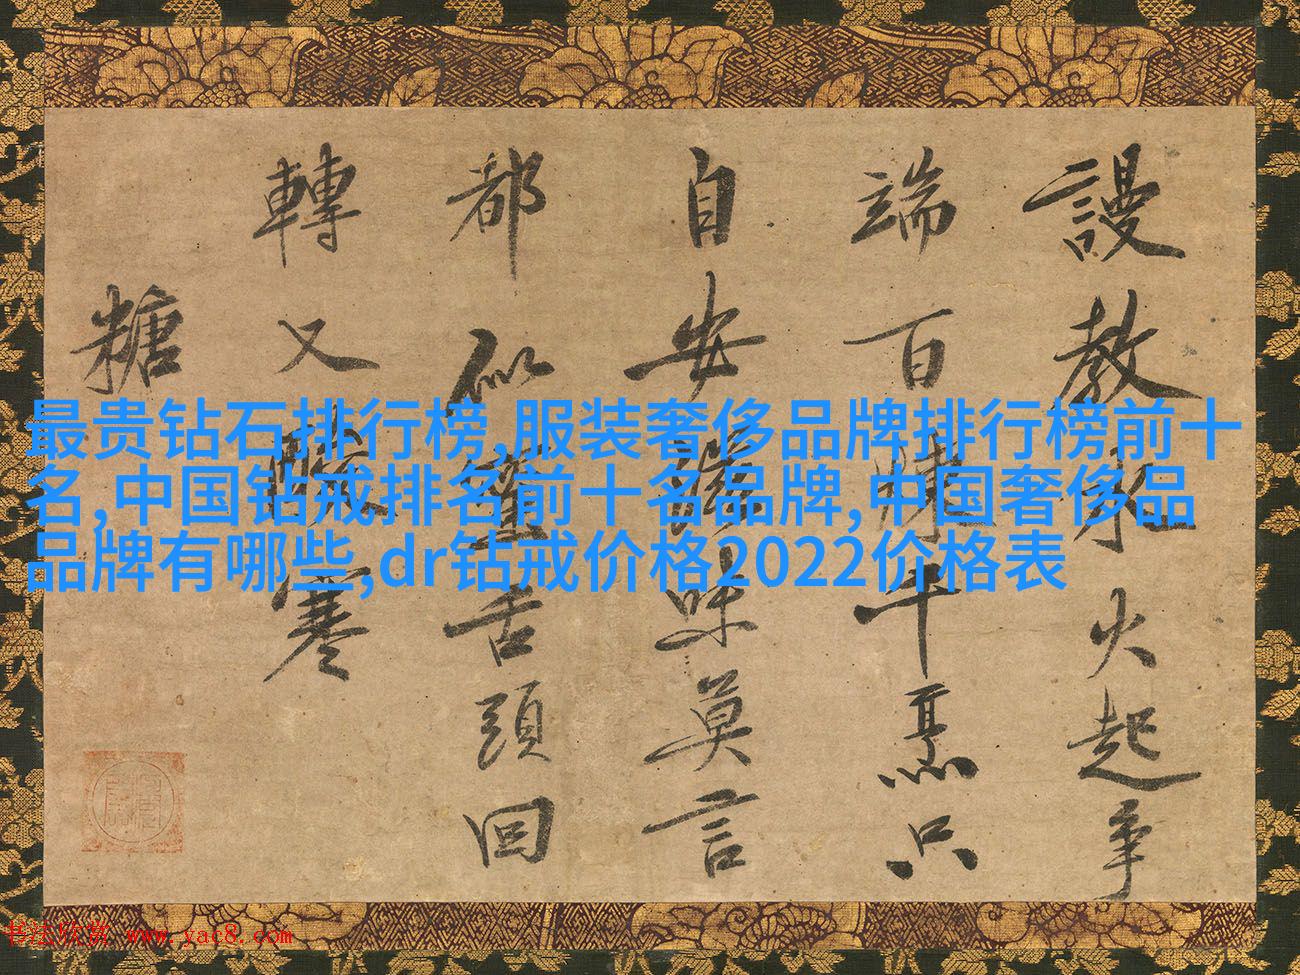 謾教火起爭
端百煉千只
自安味莫言
都似蜜舌頭回
轉又酸寒
糖
最贵钻石排行榜,服装奢侈品牌排行榜前十
名,中国钻戒排名前十名品牌,中国奢侈品
品牌有哪些,dr钻戒价格2022价格表
书法欣赏 www.yac8.com